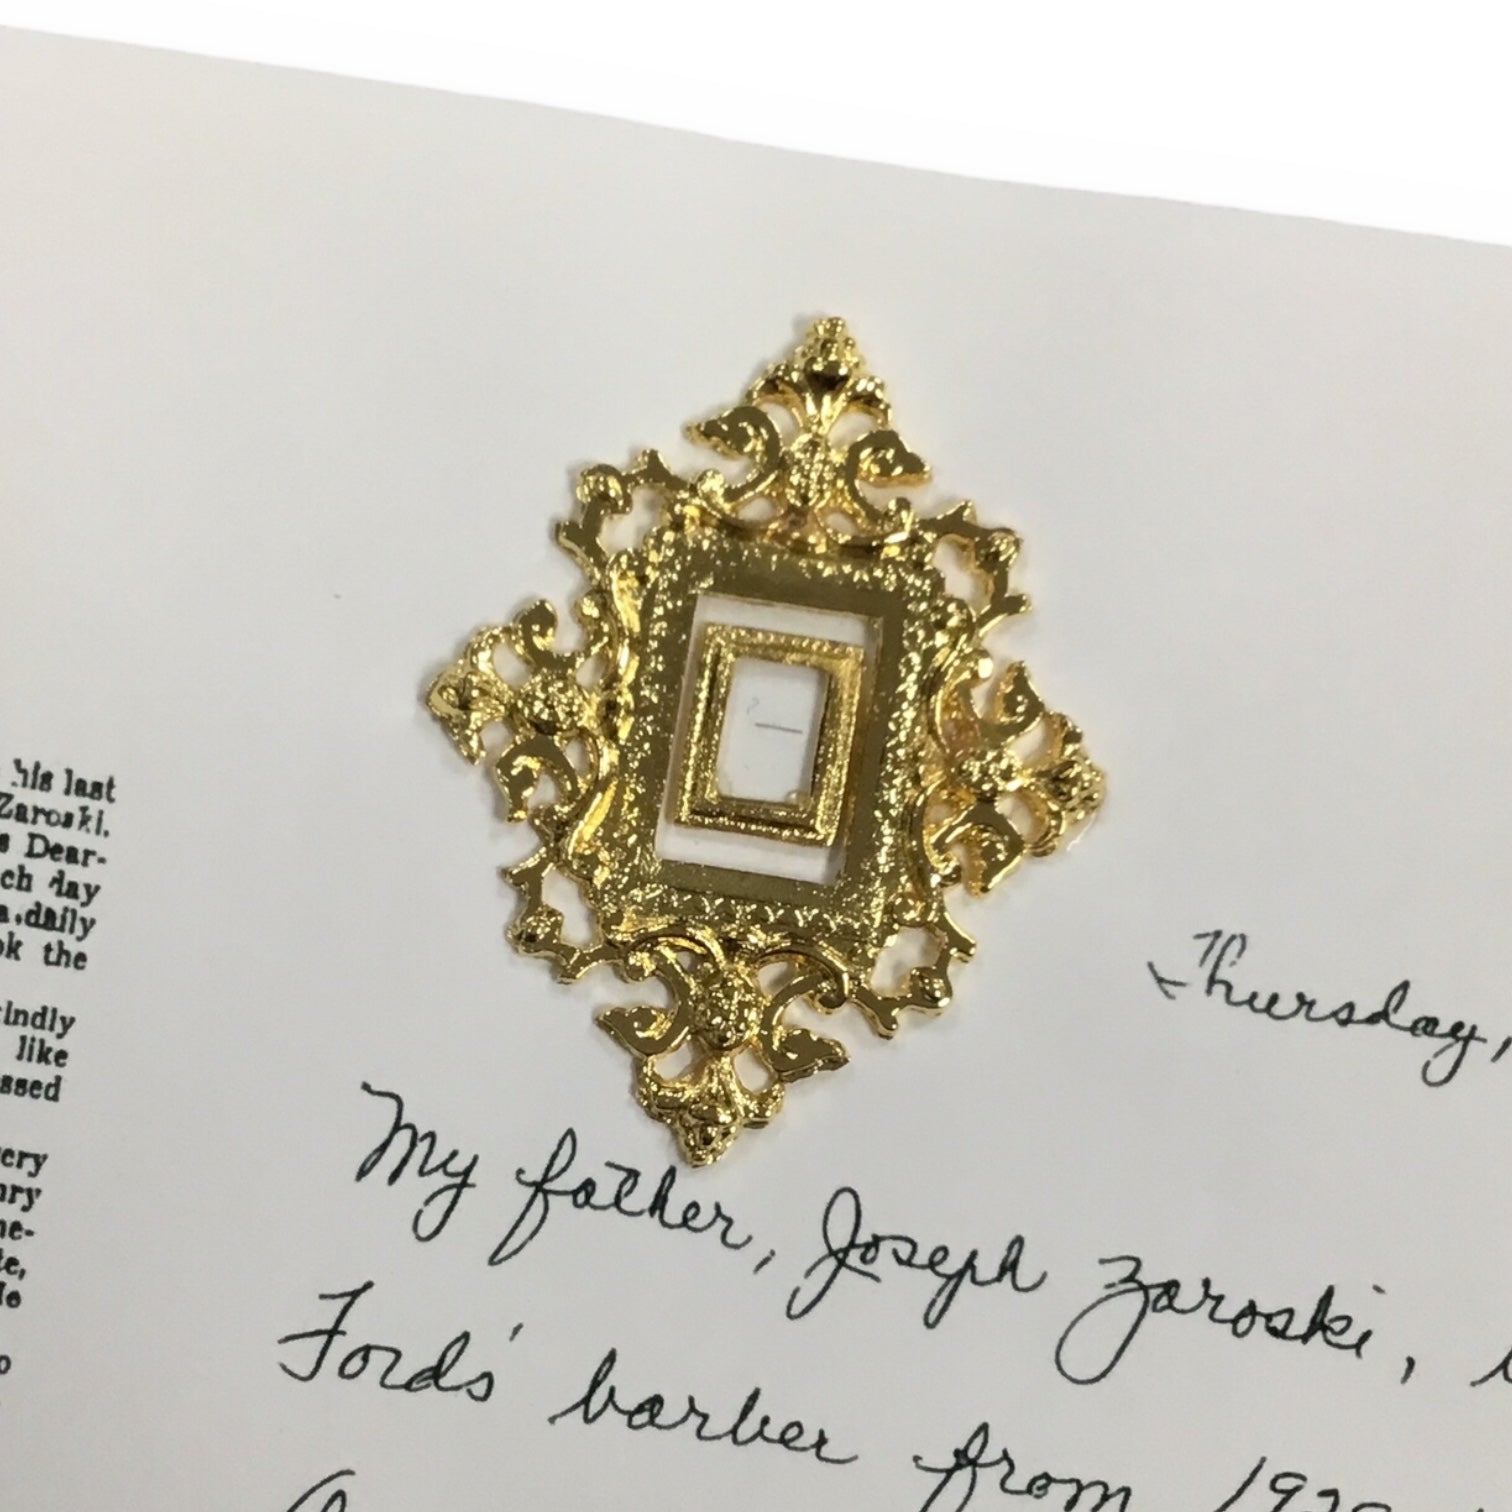 his last
Zaroski.
s Dear-
ch day
a daily
ok the
indly
like
ssed
ery
nry
ne-
te,
Thursday,
My father, Joseph Zaroski,
Fords' barber from